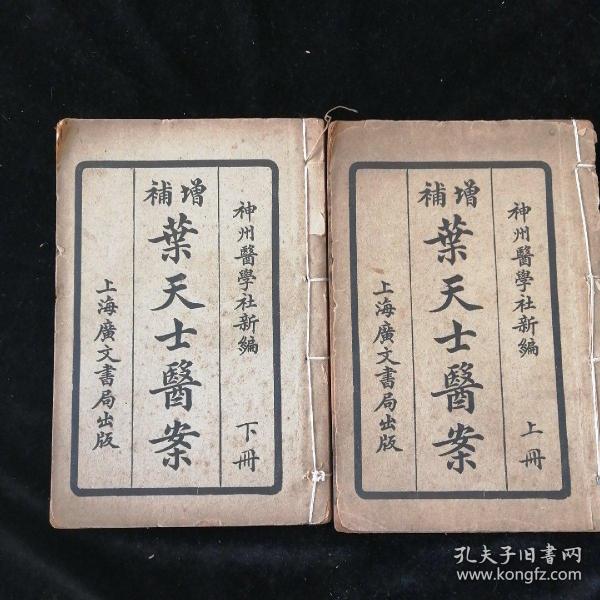 神州醫學社新編
上冊
增補
葉天士醫案
上海廣文書局出版
神州醫學社新編
下冊
增補
葉天士醫案
上海廣文書局出版
孔夫子旧書网
www.kongfz.com